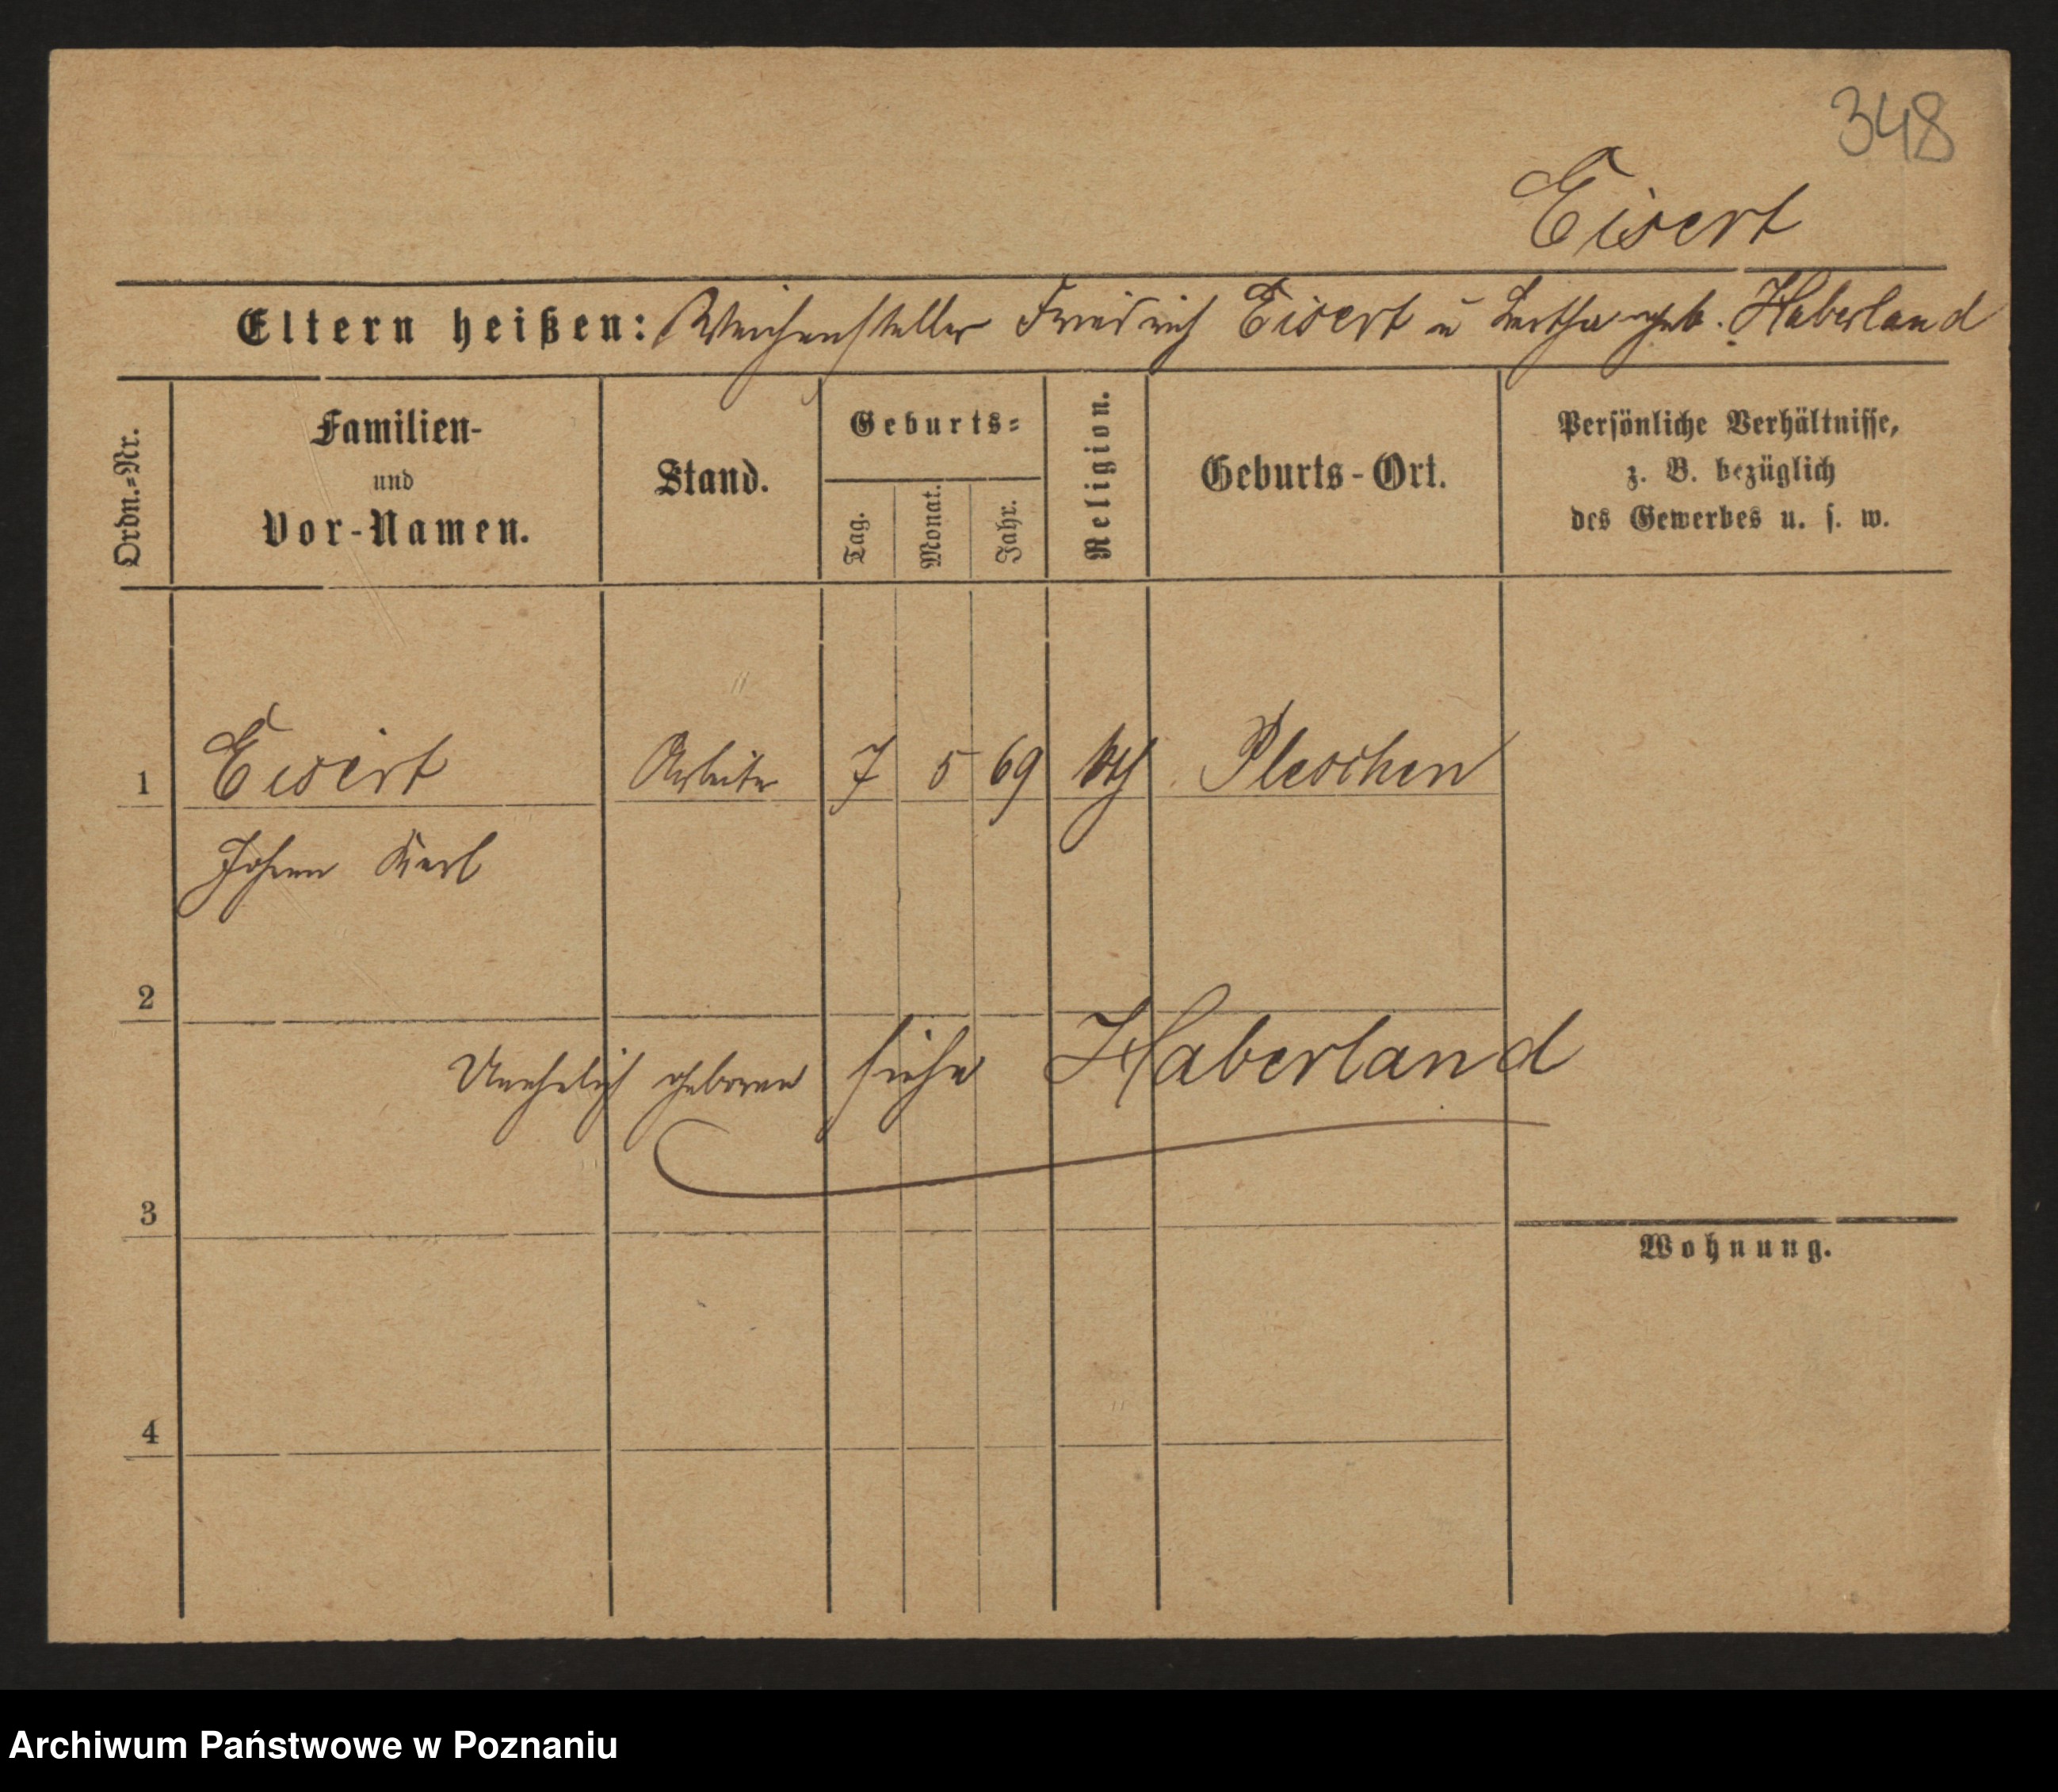 348
Eisert
Eltern heißen: Weichensteller Friedrich Eisert u Bertha geb. Haberland
Ordn.-Nr.
Familien-
und
Vor-Namen.
Stand.
Geburts-
Tag.
Monat.
Jahr.
Religion.
Geburts-Ort.
Persönliche Verhältnisse,
z. B. bezüglich
des Gewerbes u. s. w.
1 Eisert Arbeiter 7 5 69 Pleschen
Johann Karl
2
Unehelich geboren siehe Haberland
3
Wohnung.
4
Archiwum Państwowe w Poznaniu